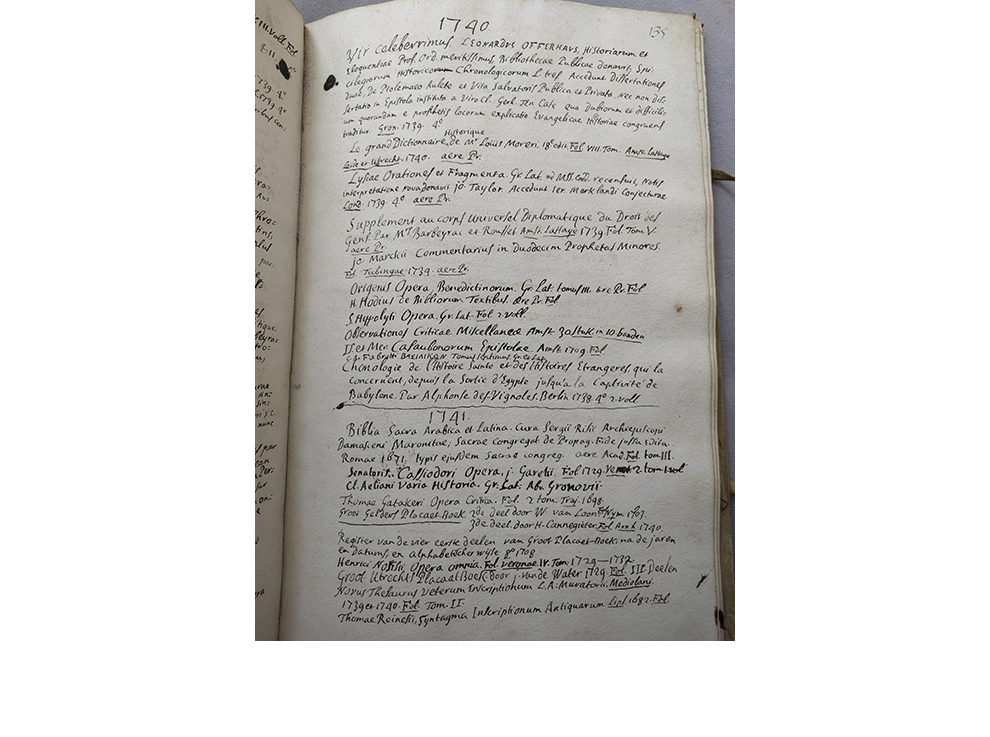 1740
135
Vir celeberrimus LEONARDUS OFFERHAUS, Historiarum et
Eloquentiae Prof. Ord. meritissimus, Bibliothecae Publicae donavit, Spi-
cilegiorum Historicorum Chronologicorum L. tres. Accedunt Dissertationes
duae, De Ptolemaeo Aulete et Vita Salvatoris Publica et Privata. Nec non Dis-
sertatio in Epistola instituta a Viro Cl. Gerh. Ten Cate qua Dubiorum et difficili-
um quorundam e prophetis locorum explicatio Evangelicae Historiae congruens
traditur. Gron. 1739. 4º
Le grand Dictionnaire Historique de Mr Louis Moreri. 18e edit. Fol VIII. Tom. Amst. La Haye
Leide et Utrecht. 1740. aere Pr.
Lysiae Orationes et Fragmenta. Gr. Lat. ad MSS. Codd. recensuit, Notis
interpretatione nova donavit Jo. Taylor. Accedunt Ier. Marklandi Conjecturae
Lond. 1739. 4º aere Pr.
Supplement au corps Universel Diplomatique du Droit des
Gens. Par Mrs Barbeyrac et Rousset Amst. La Haye 1739 Fol Tom. V.
aere Pr.
Jo. Marckii Commentarius in Duodecim Prophetas Minores
Fol Tubingae 1739. aere Pr.
Origenis Opera, Benedictinorum. Gr. Lat. tomus III. aere Pr. Fol
H. Hodius de Bibliorum Textibus. aere Pr. Fol
S Hypolyti Opera. Gr. Lat. Fol. 2. voll
Observationes Criticae Miscellaneae Amst. 30 stuk. in 10 banden
Is. et Mer. Casaubonorum Epistolae. Amst. 1709. Fol
C. A. Fabrotti ΒΑΣΙΛΙΚΩΝ. Tomus septimus Gr. et Lat.
Chronologie de l'Histoire Sainte et des Histoires Etrangeres qui la
concernent, depuis la Sortie d'Egypte jusqu'a la Captivité de
Babylone. Par Alphonse des Vignoles. Berlin 1738. 4º 2. voll
1741.
Biblia Sacra Arabica et Latina. Cura Sergii Risii Archiepiscopi
Damasceni Maronitae, Sacrae Congregat. de Propag. Fide jussu edita.
Romae 1671. typis ejusdem Sacrae congreg. aere Acad. Fol. tom III.
Senatoris. Cassiodori Opera, j. Garetii. Fol 1729. Venet 2. tom
Cl. Aeliani Varia Historia. Gr. Lat. Abr. Gronovii.
Thomae Gatakeri Opera Critica. Fol. 2 tom. Traj. 1698.
Groot Gelders Placaet-Boek 2de deel door W. van Loon Fol Nym. 1703.
3de deel door H. Cannegieter. Fol. Arnh 1740.
Register van de vier eerste deelen van Groot Placaet-Boek, na de jaren
en Datums, en alphabetischer wijse 8º 1708
Henrici Norisii, Opera omnia. Fol. veronae IV. Tom. 1729—1732.
Groot Utrechts Placaat Boek door J. van de Water 1729 Fol. III Deelen
Novus Thesaurus Veterum Inscriptionum L. A. Muratorii. Mediolani.
1739 et 1740. Fol. Tom. II.
Thomae Reinesii, Syntagma Inscriptionum Antiquarum Lips 1682. Fol.